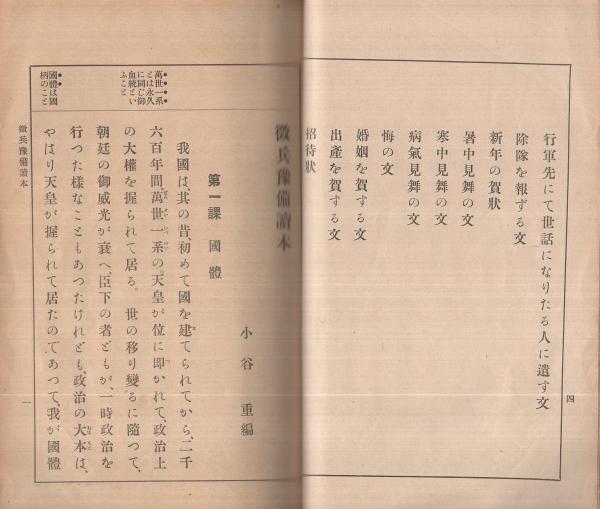 行軍先にて世話になりたる人に遣す文
除隊を報ずる文
新年の賀狀
暑中見舞の文
寒中見舞の文
病氣見舞の文
悔の文
婚姻を賀する文
出產を賀する文
招待狀
四
徵兵豫備讀本
小谷重編
第一課 國體
我國は、其の昔、初めて國を建てられてから、二千
六百年間、萬世一系の天皇が位に即かれて、政治上
の大權を握られて居る。世の移り變るに隨つて、
朝廷の御威光が衰へ、臣下の者どもが、一時政治を
行つた樣なこともあつたけれども、政治の大本は、
やはり天皇が握られて居たのであつて、我が國體
萬世一系
とは永久
に同じ御
血統とい
ふこと
國體は國
柄のこと
徵兵豫備讀本
一